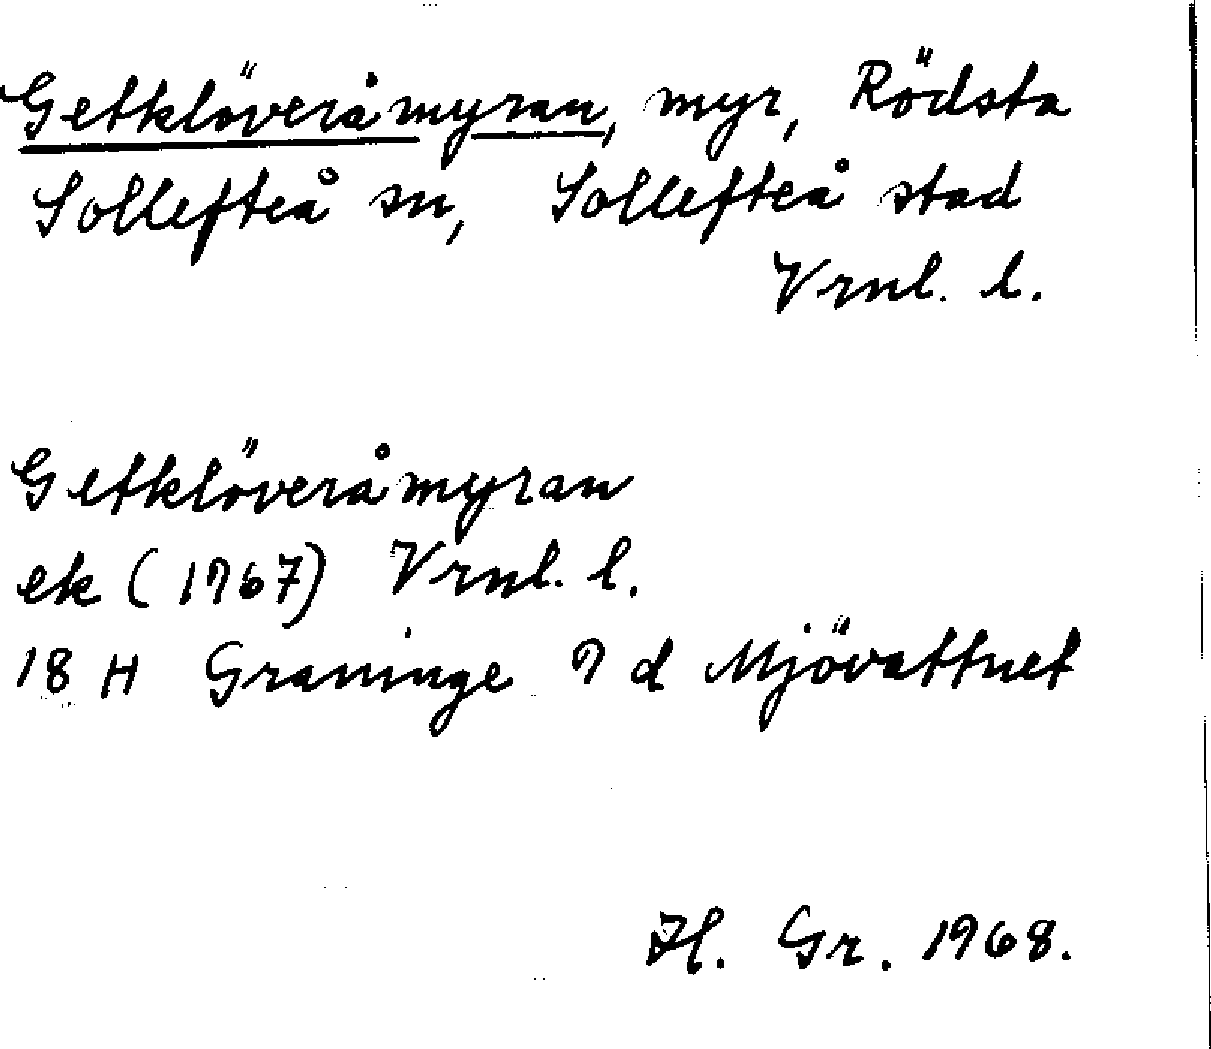 Getklöveråmyran, myr, Rödsta
Sollefteå sn, Sollefteå stad
Vrnl. l.
Getklöveråmyran
ek (1967) Vrnl. l.
18 H Graninge 9 d Mjövattnet
H. Gr. 1968.